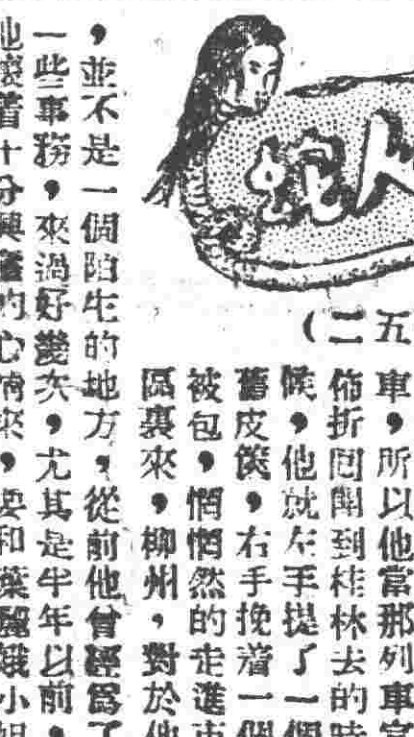 人蛇
五二(
車，所以他當那列車宣
佈折回開到桂林去的時
候，他就左手提了一個
舊皮篋，右手挽着一個
被包，惘惘然的走進市
區裏來，柳州，對於他
，並不是一個陌生的地方，從前他曾經爲了
一些事務，來過好幾次，尤其是半年以前，
他懷着十分興奮的心情來，要和葉麗娥小姐